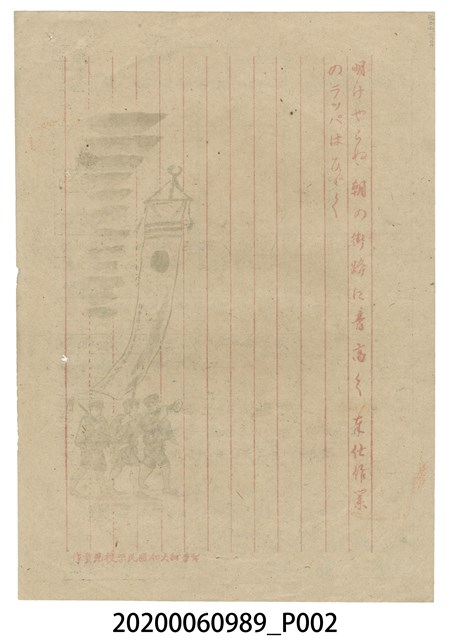 明けやらぬ朝の街路に音高く奉仕作業
のラッパはひゞく
20200060989_P002